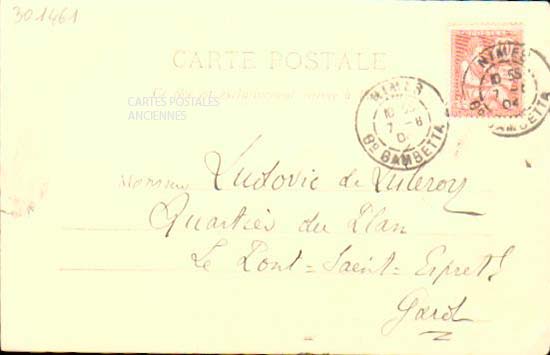 301461
CARTE POSTALE
CARTES POSTALES
ANCIENNES
NIMES
10 55
7 - 8
04
Bd GAMBETTA
NIMES
10 55
7 - 8
04
Bd GAMBETTA
Monsieur Ludovic de
Quartier du Plan
Le Pont=Saint=Esprit
Gard